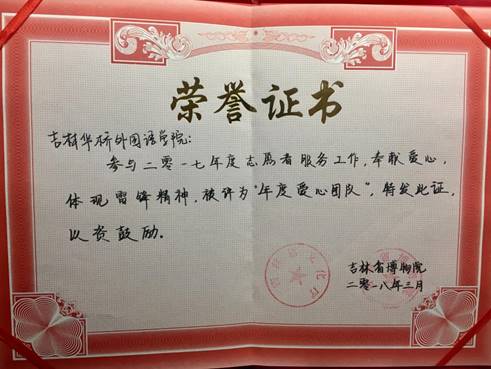 荣誉证书
吉林华桥外国语学院：
参与二零一七年度志愿者服务工作，奉献爱心，
体现雷锋精神，被评为“年度爱心团队”，特发此证，
以资鼓励。
吉林省博物院
二零一八年三月